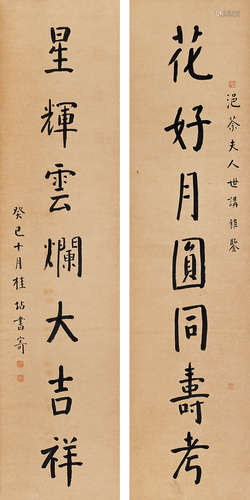 花好月圓同壽考
浥荼夫人世講雅鑒
星輝雲爛大吉祥
癸巳十月桂拈書寄